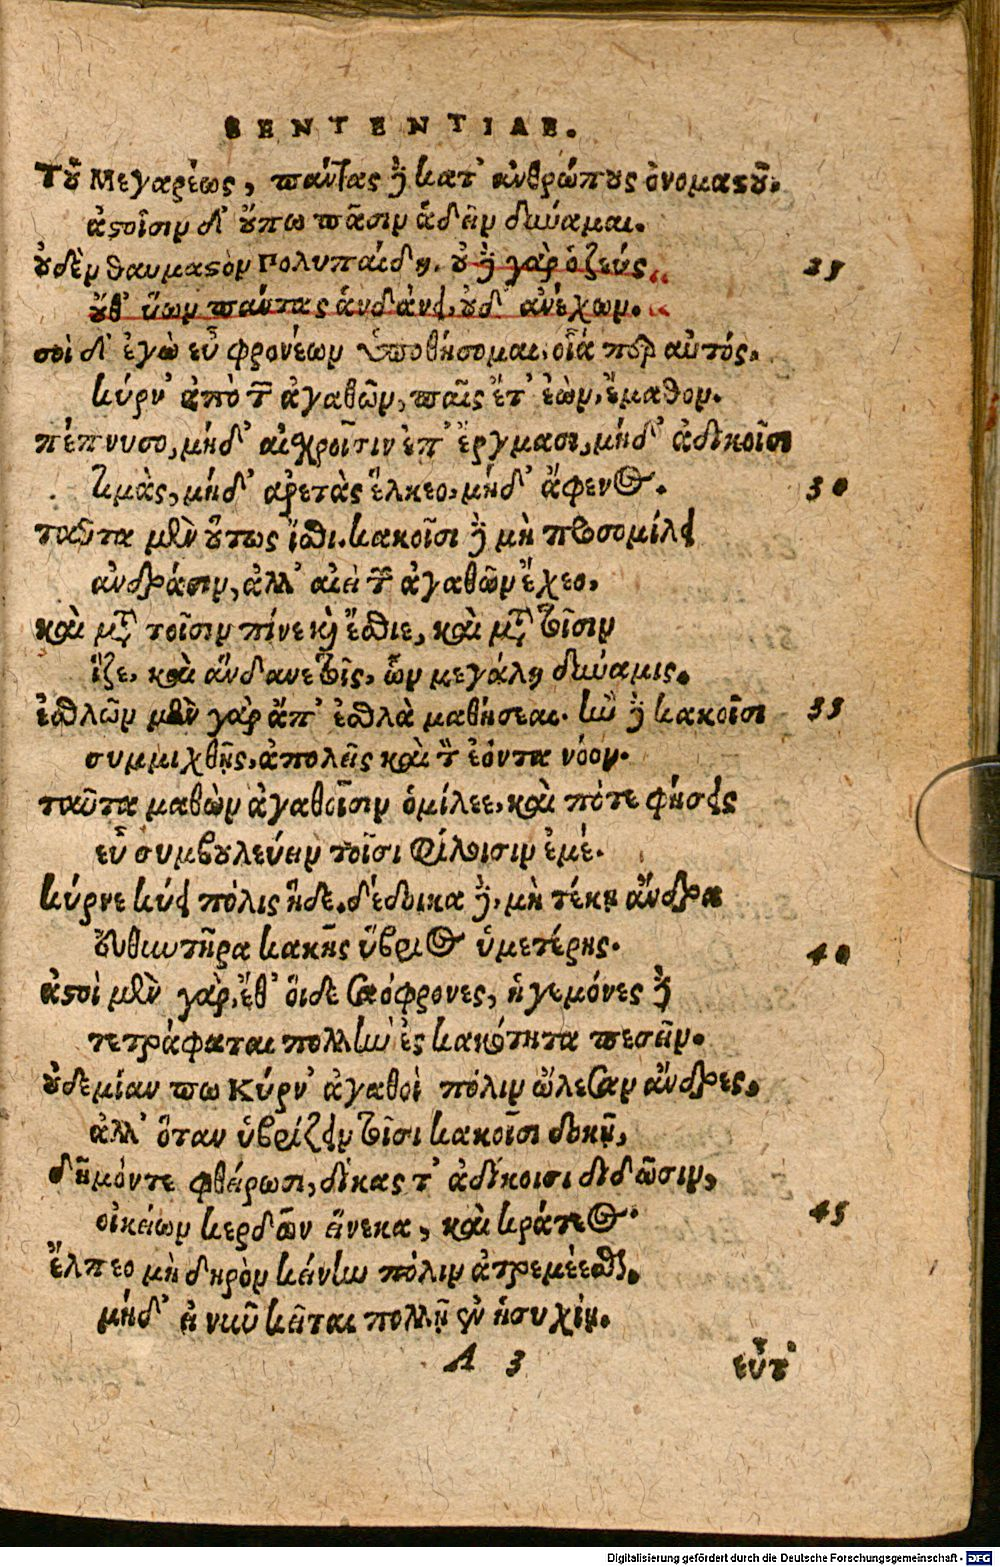 SENTENTIAE.
Τοῦ Μεγαρέως, πάντας δὲ κατ' ἀνθρώπους ὀνομαστοῦ.
ἀστοῖσιν δ' οὔπω πᾶσιν ἁδεῖν δύναμαι.
οὐδὲν θαυμαστὸν Πολυπαίδη. οὐδὲ γὰρ ὁ ζεὺς 25
οὔθ' ὕων πάντας ἁνδάνει, οὐδ' ἀνέχων.
σοὶ δ' ἐγὼ εὖ φρονέων ὑποθήσομαι, οἷά περ αὐτός.
κύρν' ἀπὸ τῶν ἀγαθῶν, παῖς ἔτ' ἐὼν, ἔμαθον.
πέπνυσο, μήδ' αἰσχροῖσιν ἐπ' ἔργμασι, μήδ' ἀδίκοισι
τιμὰς, μήδ' ἀρετὰς ἕλκεο, μήδ' ἄφενος. 30
ταῦτα μὲν οὕτως ἴσθι. κακοῖσι δὲ μὴ προσομίλει
ἀνδράσιν, ἀλλ' αἰεὶ τῶν ἀγαθῶν ἔχεο.
καὶ μετὰ τοῖσιν πίνε καὶ ἔσθιε, καὶ μετὰ τοῖσιν
ἵζε, καὶ ἅνδανε τοῖς, ὧν μεγάλη δύναμις.
ἐσθλῶν μὲν γὰρ ἄπ' ἐσθλὰ μαθήσεαι. ἢν δὲ κακοῖσι 35
συμμιχθῇς, ἀπολεῖς καὶ τὸν ἐόντα νόον.
ταῦτα μαθὼν ἀγαθοῖσιν ὁμίλεε, καὶ πότε φήσεις
εὖ συμβουλεύειν τοῖσι φίλοισιν ἐμέ.
κύρνε κύει πόλις ἥδε. δέδοικα δὲ, μὴ τέκῃ ἄνδρα
εὐθυντῆρα κακῆς ὕβριος ὑμετέρης. 40
ἀστοὶ μὲν γὰρ, ἔθ' οἵδε σαόφρονες, ἡγεμόνες δὲ
τετράφαται πολλὴν ἐς κακότητα πεσεῖν.
οὐδεμίαν πω Κύρν' ἀγαθοὶ πόλιν ὤλεσαν ἄνδρες.
ἀλλ' ὅταν ὑβρίζειν τοῖσι κακοῖσι δοκῇ,
δῆμόν τε φθείρωσι, δίκας τ' ἀδίκοισι διδῶσιν, 45
οἰκείων κερδῶν εἵνεκα, καὶ κράτεος.
ἔλπεο μὴ δηρὸν κείνην πόλιν ἀτρεμέεσθαι.
μήδ' εἰ νῦν κεῖται πολλῇ ἐν ἡσυχίῃ.
A 3 εὖτ'
Digitalisierung gefördert durch die Deutsche Forschungsgemeinschaft - DFG